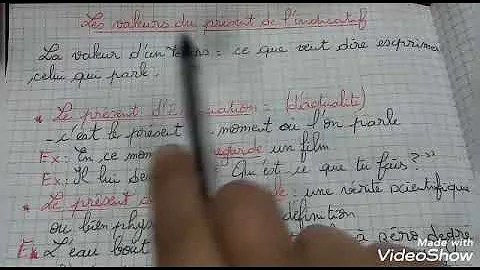 Les valeurs du présent de l'indicatif
La valeur d'un temps = ce que veut dire esprimer
celui qui parle.
* Le présent d' (d'actualité)
- c'est le présent moment ou l'on parle
Ex: En ce regarde un film
Ex: Il lui Qu'est ce que tu fais?"
* Le présent : une vérité scientifique
ou bien définition
Ex L'eau à zéro degré
Made with
VideoShow